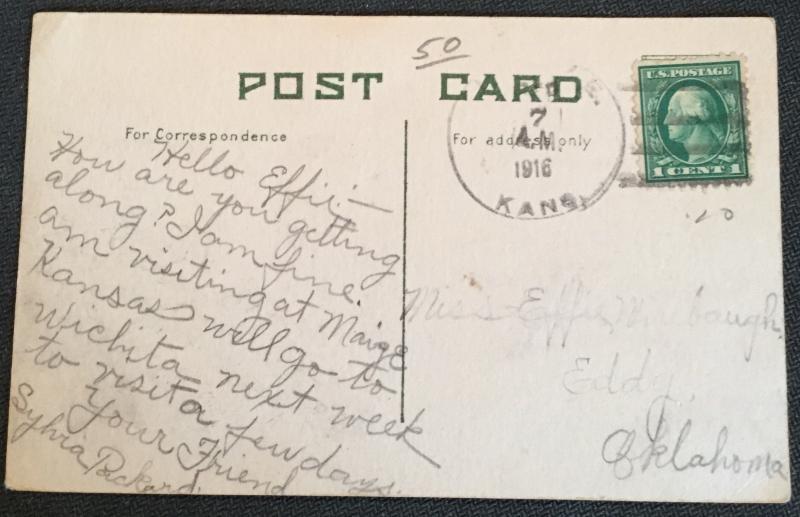 50
POST CARD
For Correspondence
For address only
7
A.M.
1916
KANS.
U.S. POSTAGE
1 CENT 1
.20
Hello Effie:—
How are you getting
along? I am fine.
am visiting at Maize
Kansas will go to
Wichita next week
to visit a few days.
Your Friend
Sylvia Packard.
Miss Effie
Eddy,
Oklahoma